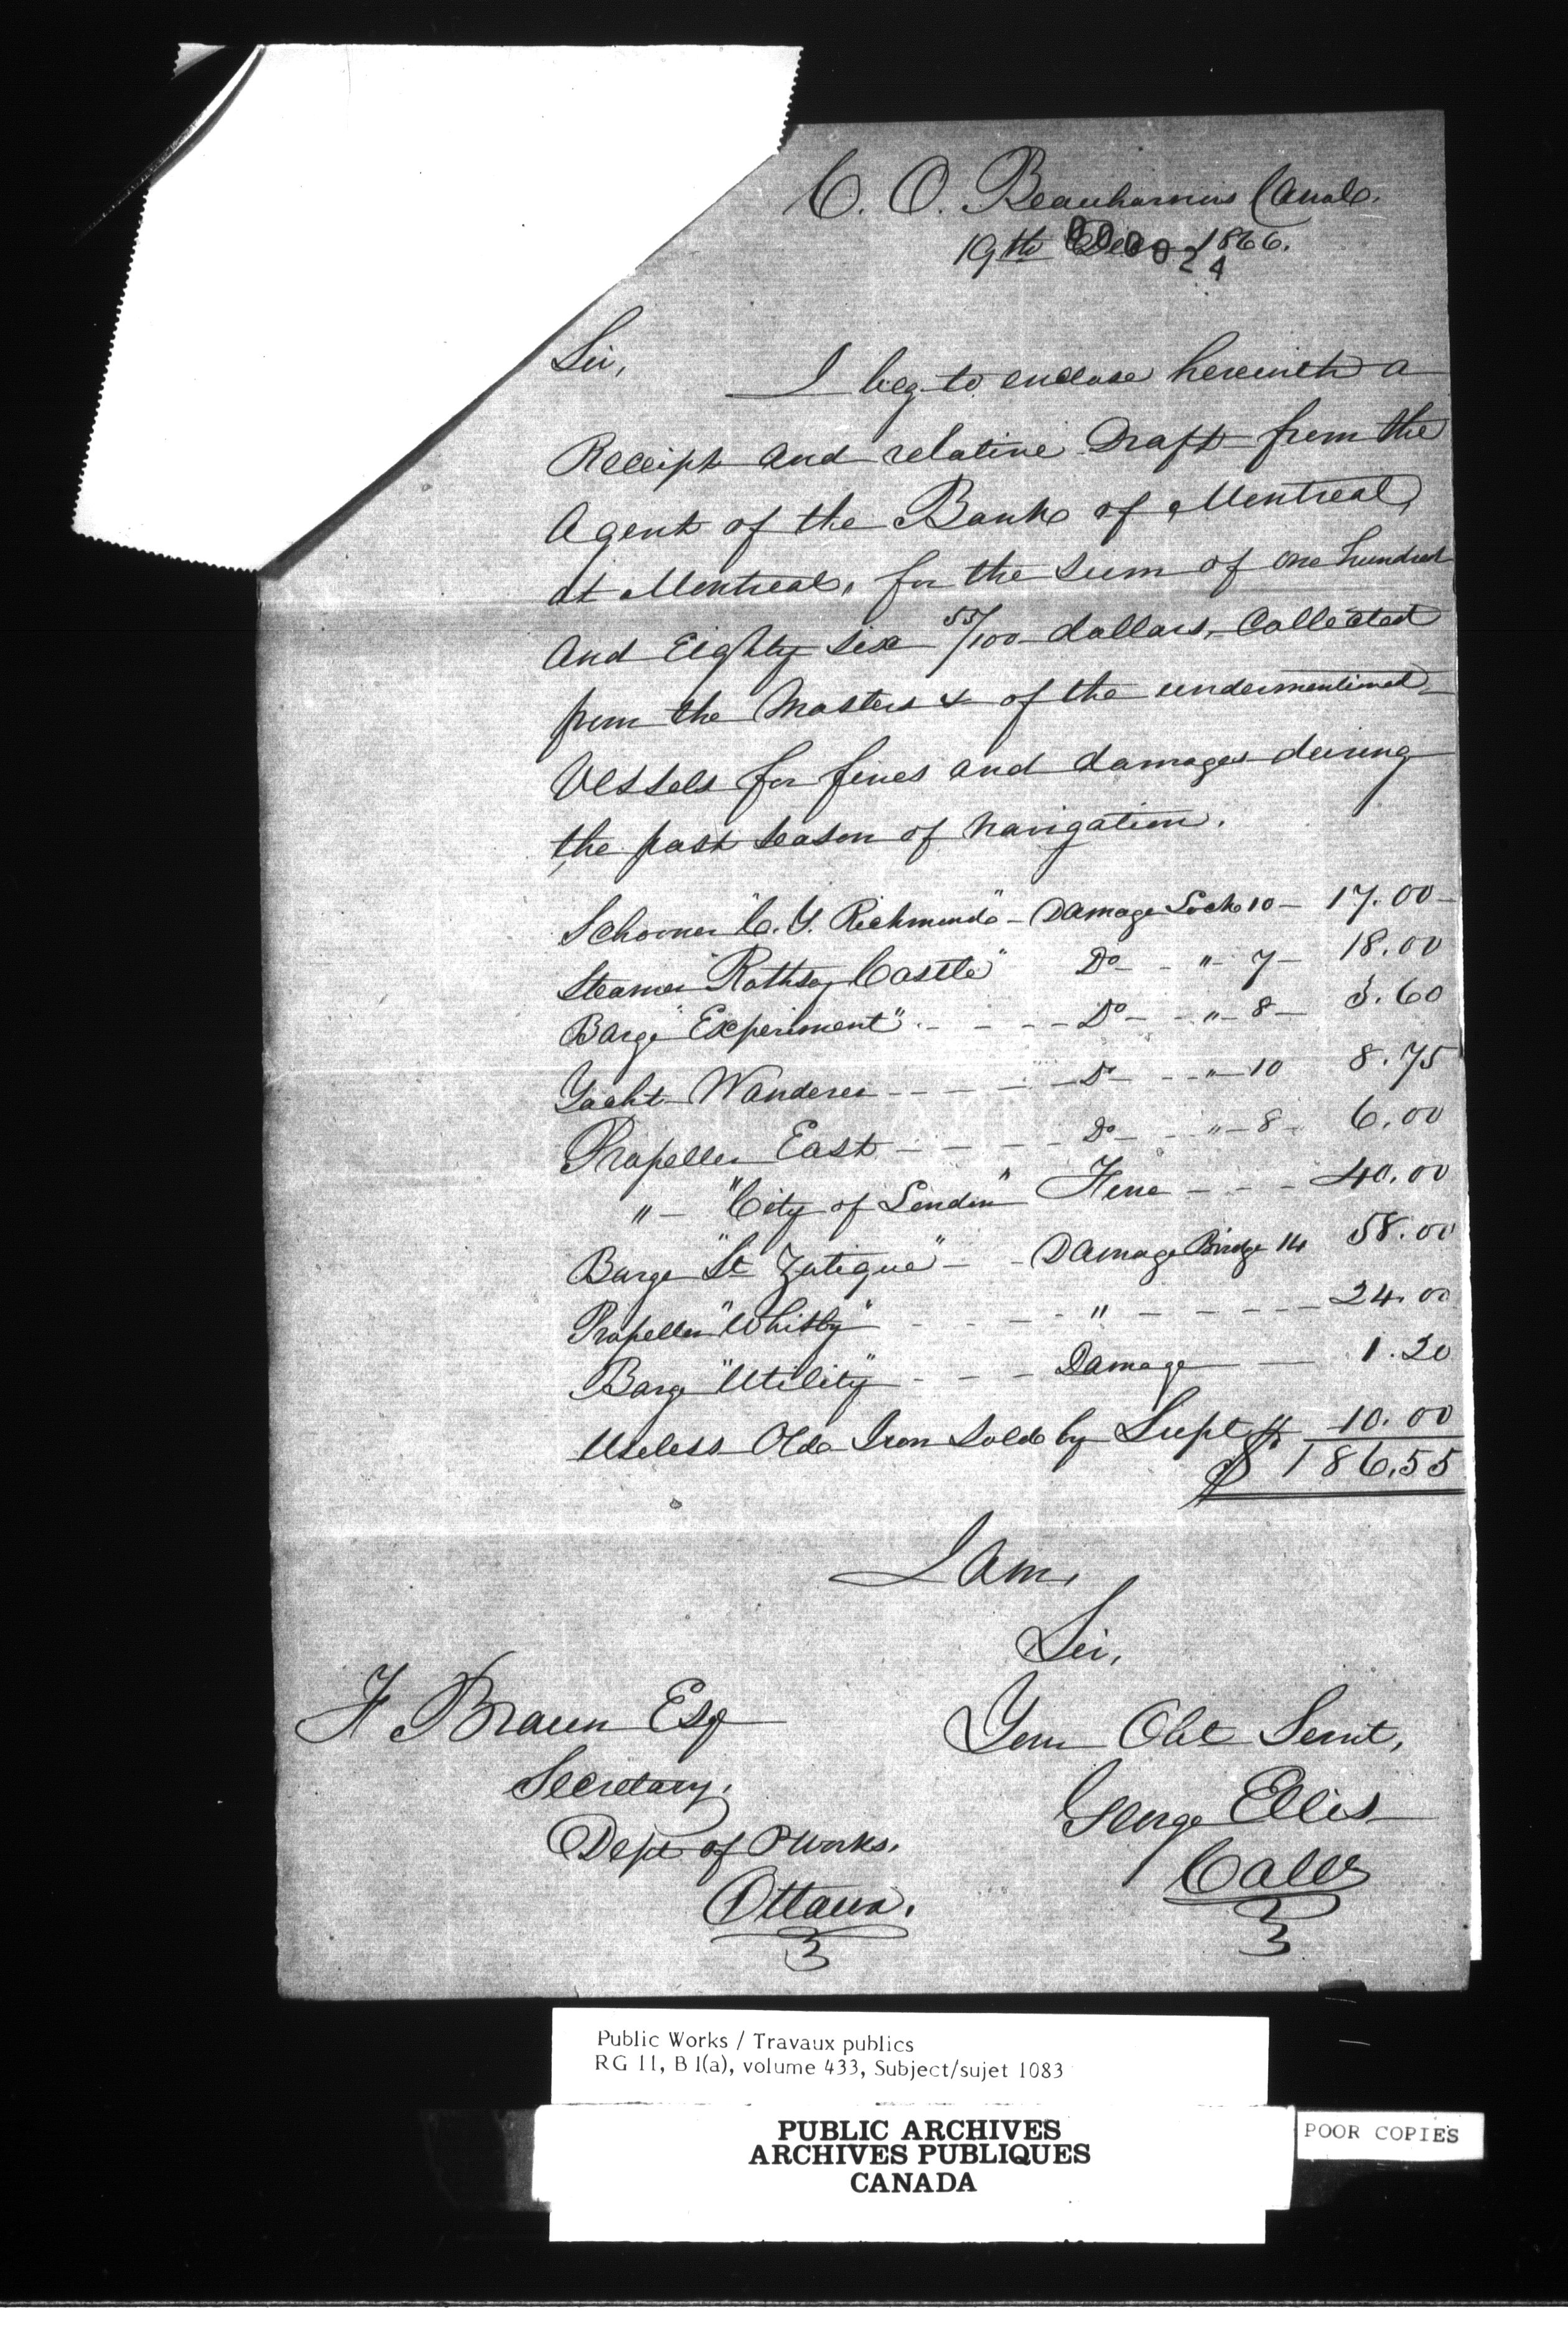 C. O. Beauharnois Canal.
19th Dec. 1866.
000024
Sir,
I beg to enclose herewith a
Receipt and relative Draft from the
Agent of the Bank of Montreal,
at Montreal, for the sum of one hundred
and Eighty six 55/100 dollars, Collected
from the Masters & of the undermentioned
Vessels for fines and damages during
the past season of navigation.
Schooner "C. Y. Richmond" - Damage Lock 10 - 17.00
Steamer "Rothsay Castle" Do - " - 7 - 18.00
Barge "Experiment" - - - - Do - - " - 8 - 3.60
Yacht Wanderer - - - - - Do - - " - 10 8.75
Propeller East - - - - - Do - - " - 8 - 6.00
" - "City of London" Fine - - - 40.00
Barge "St Zotique" - - Damage Bridge 14 58.00
Propeller "Whitby" - - - - " - - - - - 24.00
Barge "Utility" - - - Damage - 1.20
Useless Old Iron Sold by Supt 10.00
$ 186.55
I Am,
Sir,
Your Obt Servt,
George Ellis
Collr
F Braun Esq
Secretary,
Dept of P Works.
Ottawa.
Public Works / Travaux publics
RG 11, B 1(a), volume 433, Subject/sujet 1083
PUBLIC ARCHIVES
ARCHIVES PUBLIQUES
CANADA
POOR COPIES